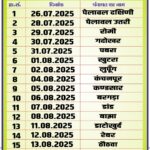 क्र.सं. दिनांक पंचायत का नाम
1 26.07.2025 पेलावल दक्षिणी
2 28.07.2025 पेलावल उतरी
3 29.07.2025 रोमी
4 30.07.2025
5 31.07.2025 पबरा
6 01.08.2025 खुटरा
7 02.08.2025 लुपुंग
8 04.08.2025 कंचनपुर
9 05.08.2025 कण्डसार
10 06.08.2025 बरगड्डा
11 07.08.2025 डांड
12 08.08.2025 बाझा
13 11.08.2025 डाटोखुर्द
14 12.08.2025 ढेंगर
15 13.08.2025